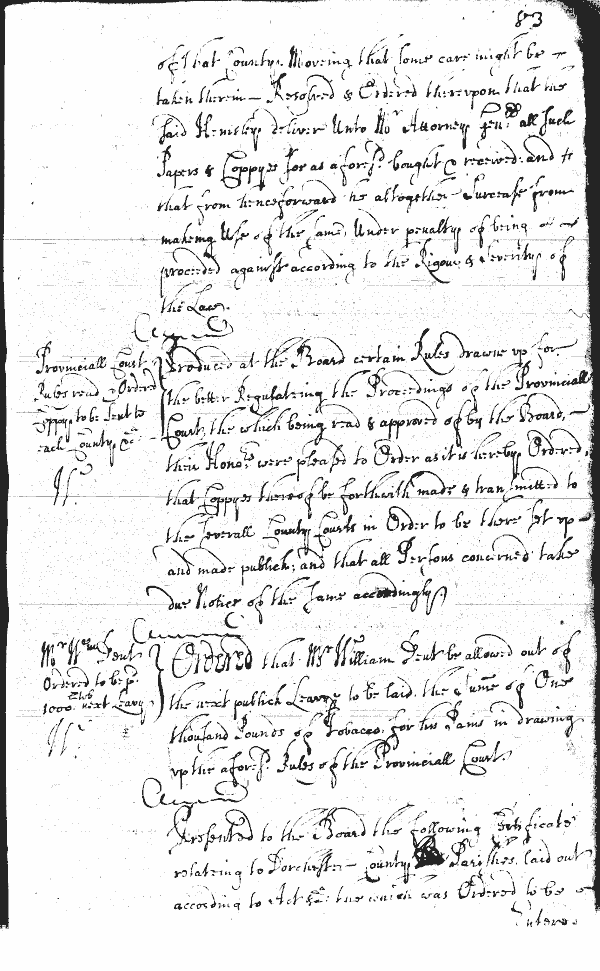 83
of that County, Moveing that some care might be
taken therein – Resolved & Ordered thereupon that the
said Hemsley deliver Unto Mr Attorney Genll all such
Papers & Coppyes for as aforesd. bought & received: and
that from henceforward he altogether Surcease from
makeing Use of the same, Under penalty of being
proceeded against according to the Rigour & Severity of
the Law.
Provinciall Court
Rules read & Ordered
Coppys to be sent to
each County &c
Produced at the Board certain Rules drawne up for
the better Regulateing the Proceedings of the Provinciall
Court, the which being read & approved of by the Board, –
their Honors. were pleased to Order as it is hereby Ordered,
that Coppyes thereof be forthwith made & transmitted to
the severall County Courts in Order to be there set up –
and made publick; and that all Persons concerned take
due Notice of the same accordingly
Mr Wm Dent
Ordered to be pd.
1000 lbs next Leavy
Ordered that Mr William Dent be allowed out of
the next publick Leavy to be laid, the sume of One
thousand Pounds of Tobacco, for his Pains in drawing
up the aforesd. Rules of the Provinciall Court.
Presented to the Board the following Certificate
relateing to Dorchester – County Parishes, laid out
according to Act &c: the which was Ordered to be
Entered